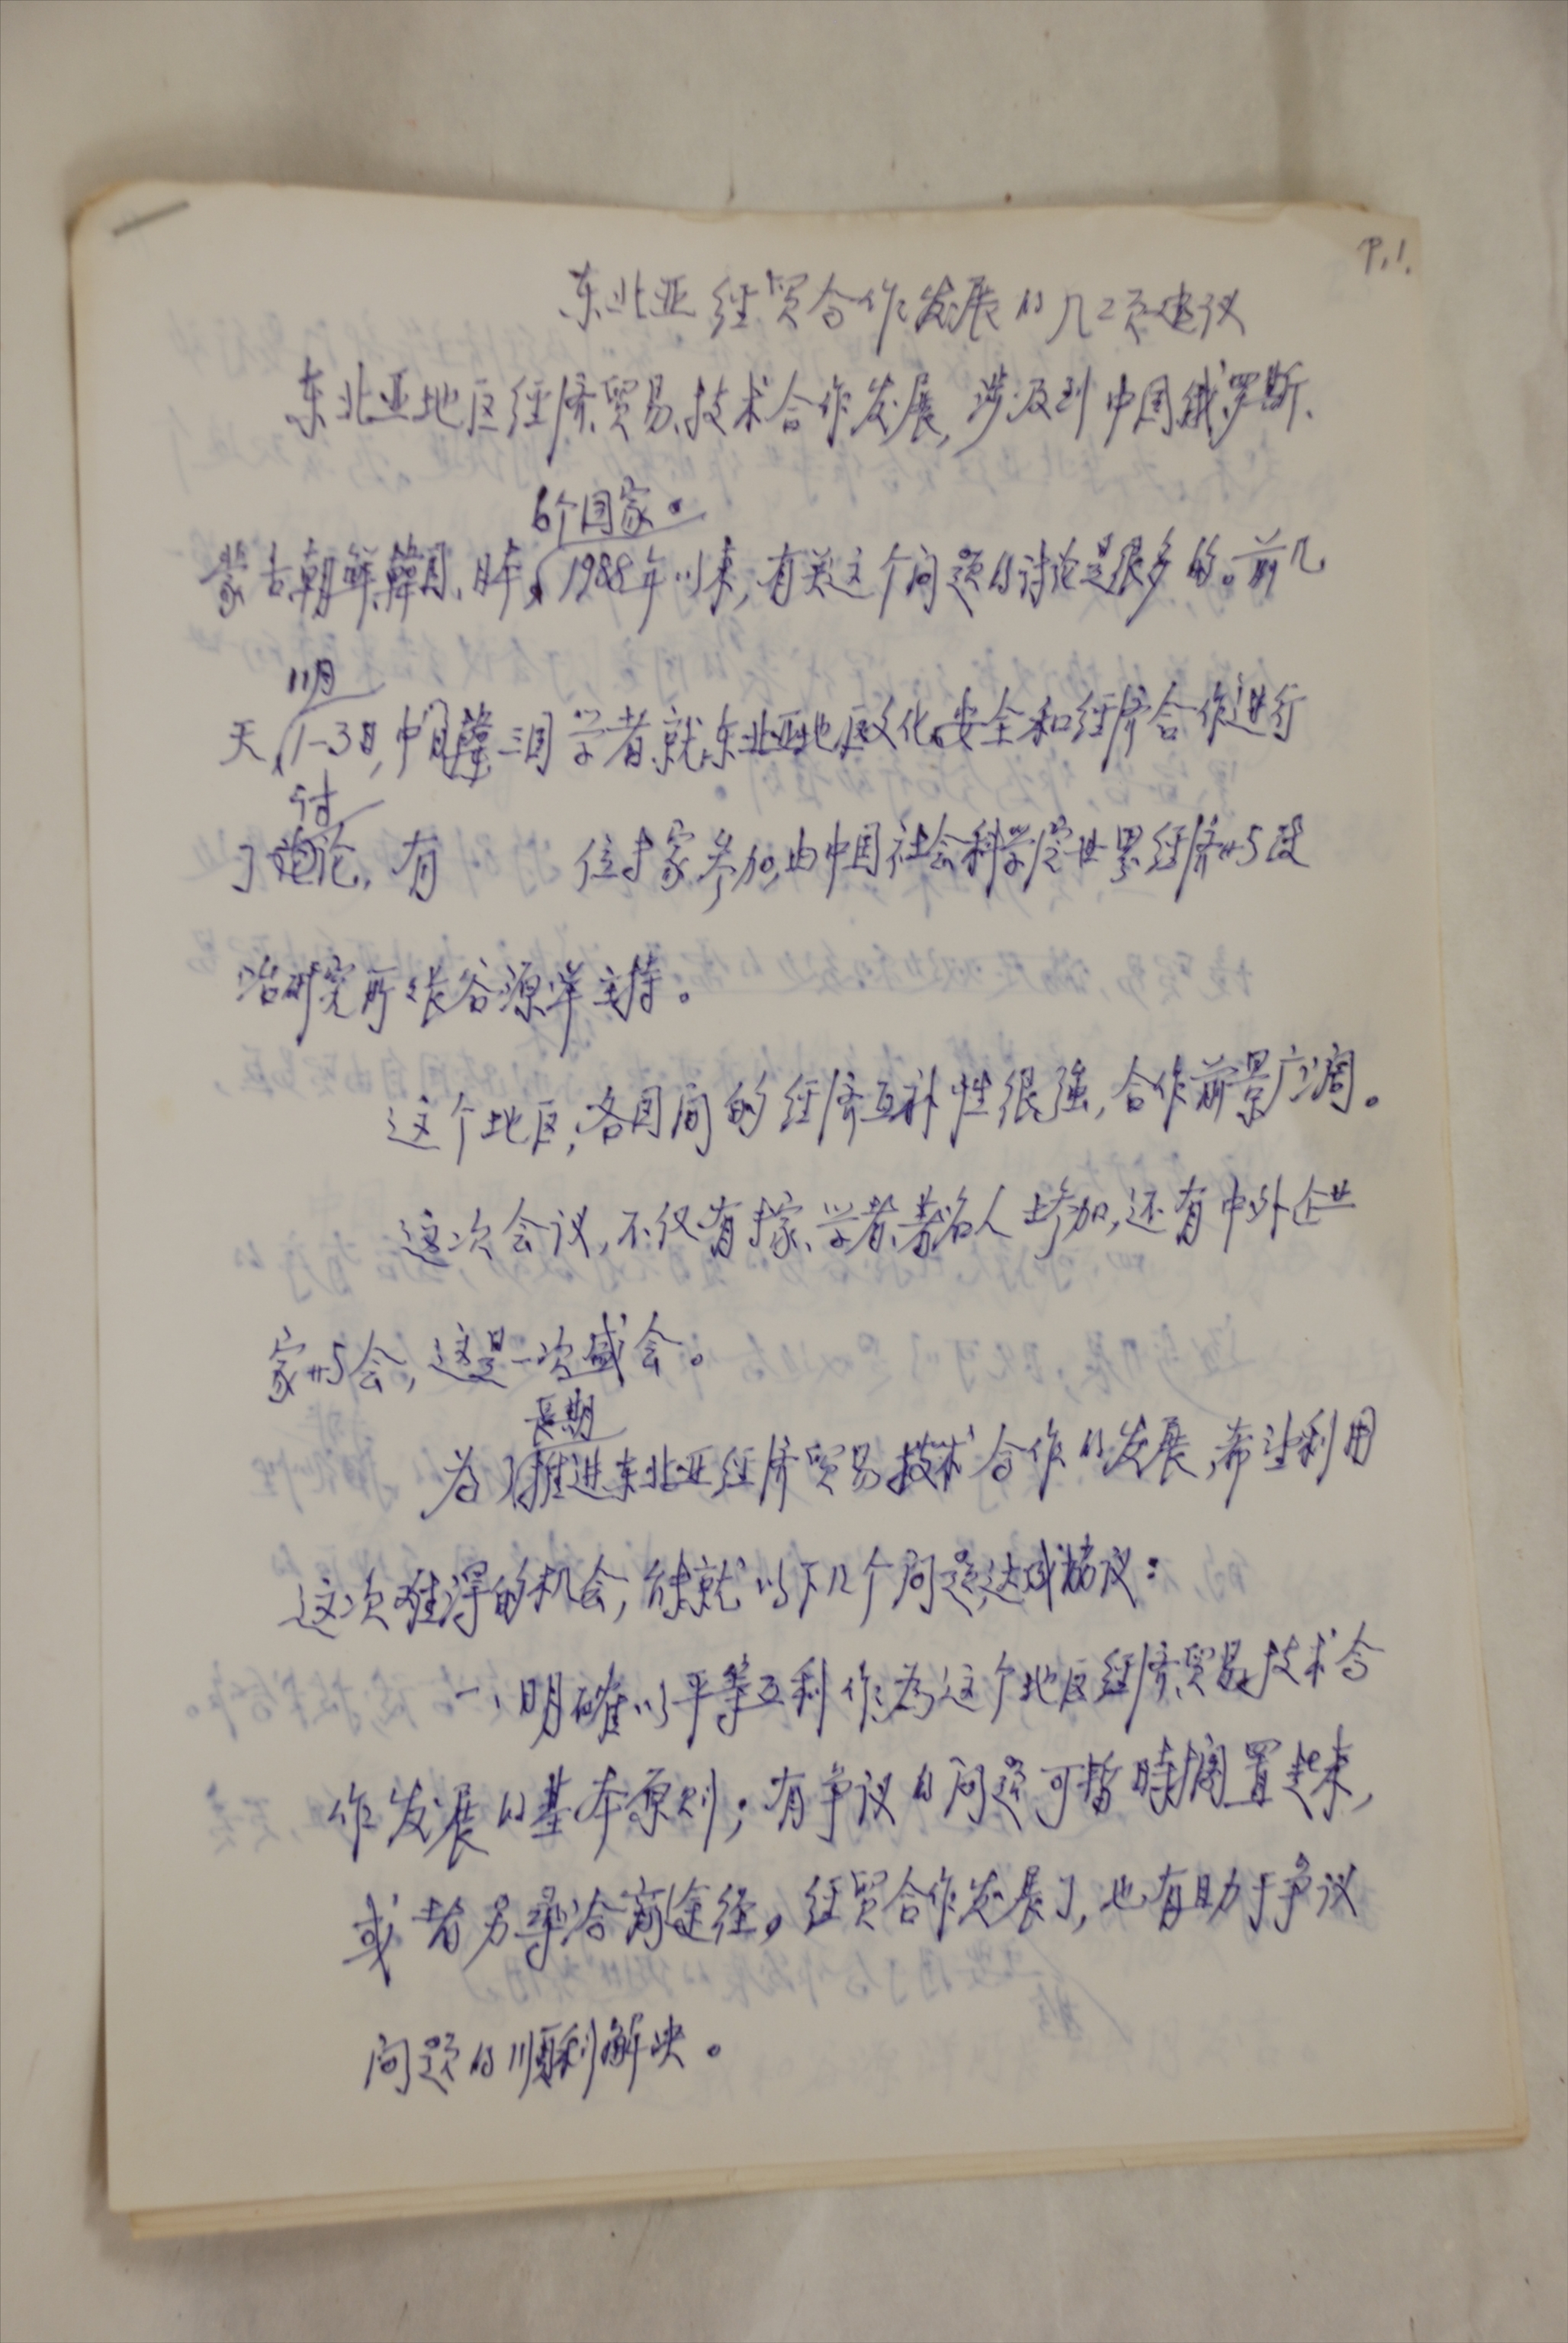 P.1.
东北亚经贸合作发展的几项建议
东北亚地区经济、贸易、技术合作发展,涉及到中国、俄罗斯、
6个国家。
蒙古、朝鲜、韩国、日本,1988年以来,有关这个问题的讨论是很多的。前几
11月
天,1-3日,中日韩三国学者就东北亚地区文化、安全和经济合作进行
讨
了论,有 位专家参加,由中国社会科学院世界经济与政
治研究所长谷源洋主持。
这个地区,各国间的经济互补性很强,合作前景广阔。
这次会议,不仅有专家、学者、著名人士参加,还有中外企业
家与会,这是一次盛会。
長期
为了推进东北亚经济贸易技术合作的发展,希望利用
这次难得的机会,能就以下几个问题达成协议:
一、明確以平等互利作为这个地区经济、贸易、技术合
作发展的基本原则;有争议的问题可暂時搁置起来,
或者另尋洽商途径。经贸合作发展了,也有助于争议
问题的顺利解决。